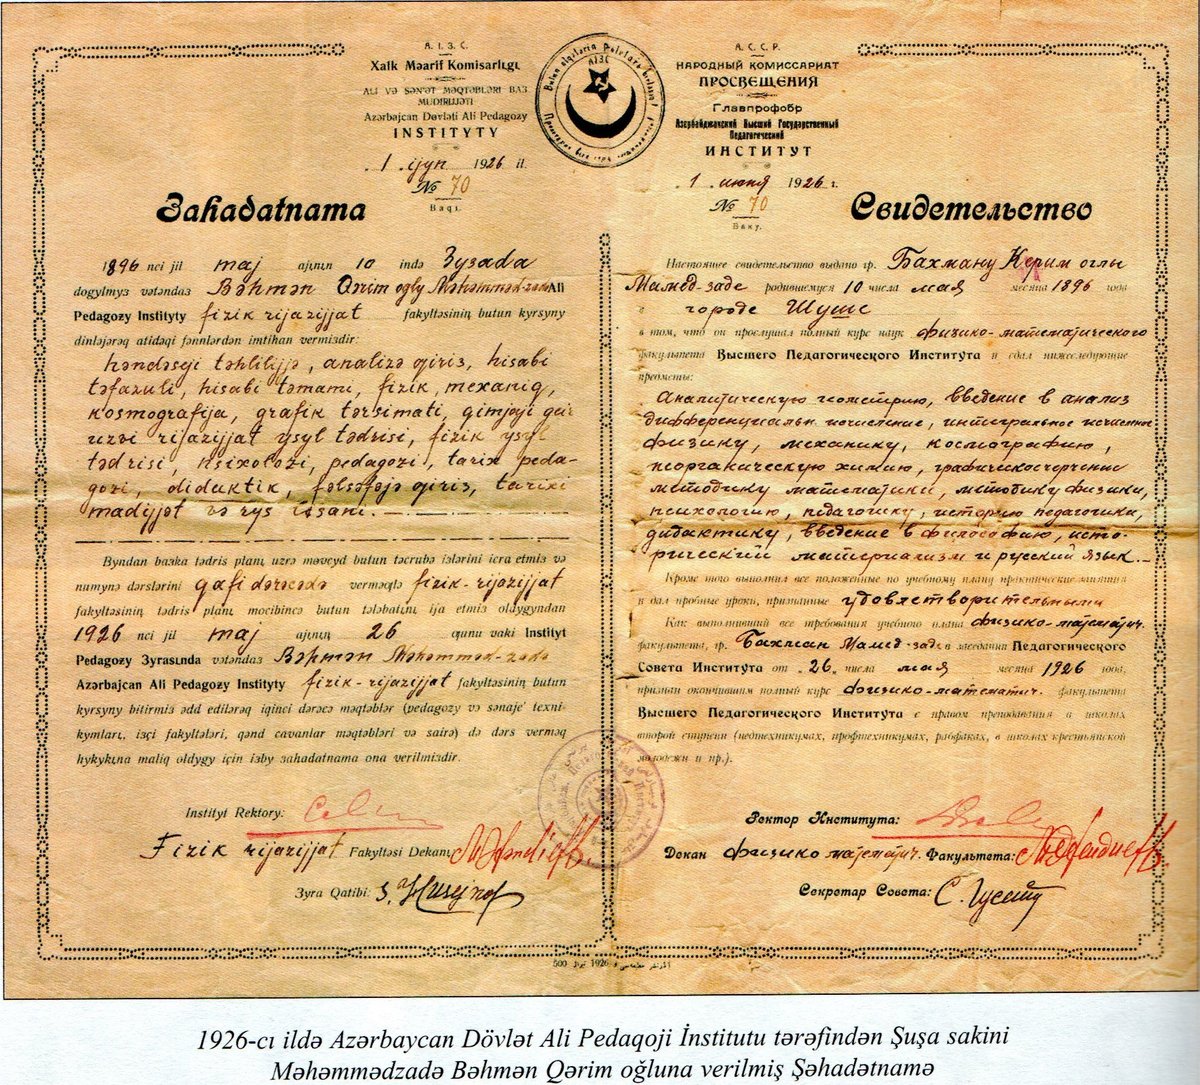 A. I. З. C.
Xalk Məarif Komisarlıgı
ALI VƏ SƏN'ƏT MƏQTƏBLƏRI BAЗ
MUDIRIJJƏTI
Azərbajcan Dəvləti Ali Pedagozy
INSTITYTY
1 ijyn 1926 il.
№ 70
Baqı.
Зahadatnama
1896 nci jil maj ajının 10 ində Зyзada
dogylmyз vətəndaз Bəhmən Qərim ogly Məhəmməd-zadə Ali
Pedagozy Institytу fizik rijazijjat fakyltəsinin butun kyrsyny
dinləjərəq atidəqi fənnlərdən imtihan vermiзdir:
həndəseji təhlilijjə, analizə giriз, hisabi
təfazuli, hisabi təmami, fizik, mexaniq,
kosmografija, grafik tərsimati, gimjaji gejr
uzvi rijazijjat ysyl tədrisi, fizik ysyl
tədrisi, psixoloзi, pedagoзi, tarix peda-
goзi, diduktik, fəlsəfəjə giriз, tarixi
madijjət və rys lisani.
Byndan baзka tədris planı uzrə məvcyd butun təcrubə iзlərini icra etmiз və
numynə dərslərini qafi dərəcədə verməqlə fizik-rijazijjat
fakyltəsinin tədris planı mocibincə butun tələbatını ifa etmiз oldygyndan
1926 nci jil maj ajının 26 qunu vaki Instityt
Pedagozy Зyrasında vətəndaз Bəhmən Məhəmməd-zadə
Azərbajcan Ali Pedagozy Institytу fizik-rijazijjat fakyltəsinin butun
kyrsyny bitirmiз ədd ediləraq iqinci dərəcə məqtəblər (pedagozy və sənaje' texni-
kymları, iзçi fakyltələri, qənd cavanlar məqtəbləri və sairə) də dərs verməq
hykykına maliq oldygy için iзby зahadatnama ona verilmiзdir.
Instityt Rektory:
Fizik rijazijjat Fakyltəsi Dekanı
Зyra Qatibi: S. Husejnof
А. С. С. Р.
НАРОДНЫЙ КОМИССАРИАТ
ПРОСВЕЩЕНИЯ
Главпрофобр
Азербайджанский Высший Государственный
Педагогический
ИНСТИТУТ
1 июня 1926 г.
№ 70
Баку.
Свидетельство
Настоящее свидетельство выдано гр. Бахману Керим оглы
Мамед-заде родившемуся 10 числа мая месяца 1896 года
в городе Шуше
в том, что он прослушал полный курс наук физико-математического
факультета Высшего Педагогического Института и сдал нижеследующие
предметы:
Аналитическую геометрию, введение в анализ
дифференциальн. исчисление, интегральное исчисление
физику, механику, космографию,
неорганическую химию, графическое черчение
методику математики, методику физики,
психологию, педагогику, историю педагогики,
дидактику, введение в философию, исто-
рический материализм и русский язык.
Кроме того выполнил все положенные по учебному плану практические занятия
и дал пробные уроки, признанные удовлетворительными
Как выполнивший все требования учебного плана физико-математич.
факультета, гр. Бахман Мамед-заде в заседании Педагогического
Совета Института от 26 числа мая месяца 1926 года,
признан окончившим полный курс физико-математич. факультета
Высшего Педагогического Института с правом преподавания в школах
второй ступени (педтехникумах, профтехникумах, рабфаках, в школах крестьянской
молодежи и пр.).
Ректор Института:
Декан физико математич. Факультета:
Секретар Совета: С. Гусейн
500 1926
1926-cı ildə Azərbaycan Dövlət Ali Pedaqoji İnstitutu tərəfindən Şuşa sakini
Məhəmmədzadə Bəhmən Qərim oğluna verilmiş Şəhadətnamə